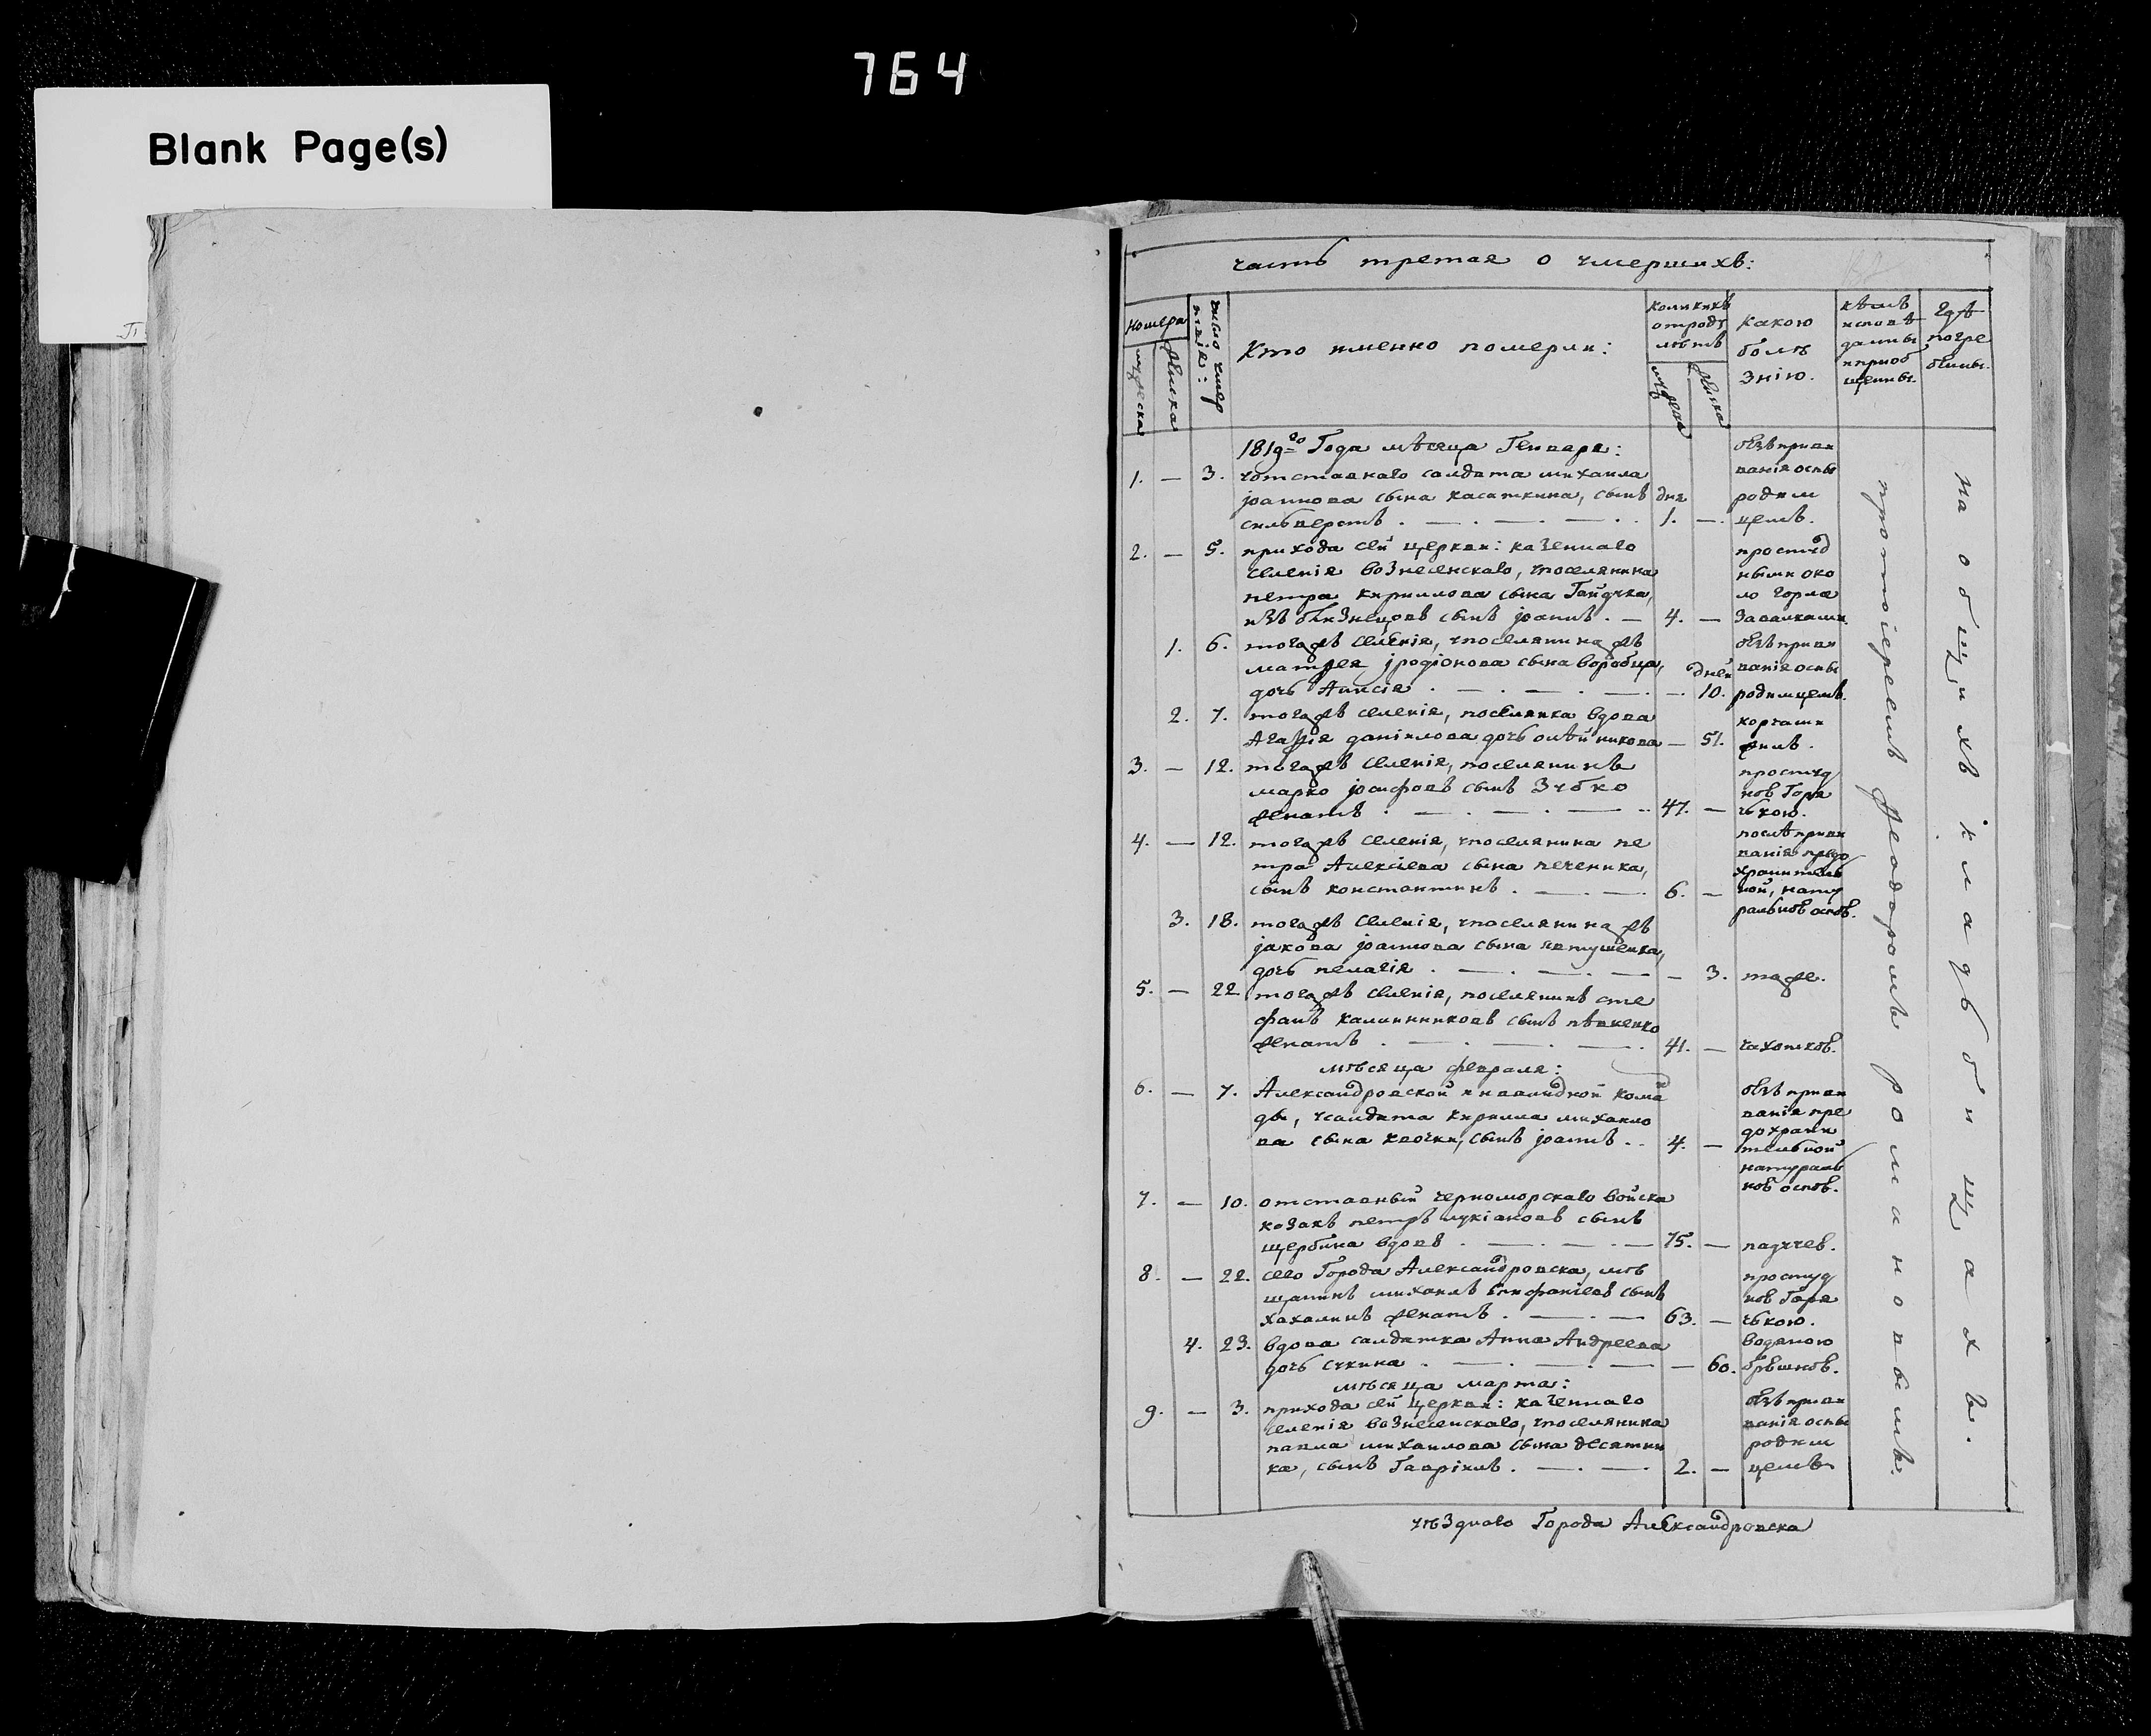 764
Blank Page(s)
часть третая о умершихъ:
Номера
мужеска
женска
число умер
твія:
Кто именно померли:
Коликихъ
отроду
лѣтъ
мужеска
женска
какою
болѣ
знію.
кѣмъ
исповѣ
даны
и приоб
щены.
Гдѣ
погре
бены.
1819го Года мѣсяца Генваря:
1. — 3. у отставнаго салдата михаила
іоаннова сына касаткина, сынъ
сильверстъ . — . — . — . дня 1. —
безъ приви
ванія оспы
родим
цемъ.
2. — 5. прихода сей церкви: казеннаго
селенія вознесенскаго, у поселянина
петра кириллова сына Гайдука,
изъ близнецовъ сынъ іоаннъ . — 4. —
простуд
ными око
ло горла
завалками.
1. 6. тогожъ селенія, у поселянина жъ
матфея іродіонова сына воробца,
дочь Анисія . — . — . — . — дней 10.
безъ приви
ванія оспы
родимцемъ.
2. 7. тогожъ селенія, поселянка вдова
Агафія даніилова дочь олѣйникова — 51.
корчами
жилъ.
3. — 12. тогожъ селенія, поселянинъ
марко іосифовъ сынъ Зубко
женатъ . — . — . — . — 47. —
простуд
ною Горя
чкою.
4. — 12. тогожъ селенія, у поселянина пе
тра Алексіева сына печеника,
сынъ константинъ . — . — 6. —
послѣ приви
ванія предо
хранитель
ной, нату
ральною оспою.
3. 18. тогожъ селенія, у поселянина жъ
іакова іоаннова сына явтушенка,
дочь пелагія . — . — . — — 3. тоже.
5. — 22. тогожъ селенія, поселянинъ сте
фанъ калинниковъ сынъ пѣвненко
женатъ . — . — . — . 41. — чахоткою.
мѣсяца февраля:
6. — 7. Александровской инвалидной коман
ды, у салдата кирилла михаило
ва сына квочки, сынъ іоаннъ . . 4. —
безъ приви
ванія пре
дохрани
тельной
натураль
ною оспою.
7. — 10. отставный черноморскаго войска
козакъ петръ лукіановъ сынъ
щербина вдовъ . — . — . — 75. — падучею.
8. — 22. сего Города Александровска, мѣ
щанинъ михаилъ Епифаніевъ сынъ
хахалинъ женатъ . — . — 63. —
простуд
ною Горя
чкою.
4. 23. вдова салдатка Анна Андреева
дочь сукина . — . — . — — 60.
водяною
брюшною.
мѣсяца марта:
9. — 3. прихода сей церкви: казеннаго
селенія вознесенскаго, у поселянина
павла михаилова сына десятни
ка, сынъ Гавріилъ . — . — 2. —
безъ приви
ванія оспы
родим
цемъ.
протоіереемъ Феодоромъ романовымъ.
на общихъ кладбищахъ.
уѣзднаго Города Александровска